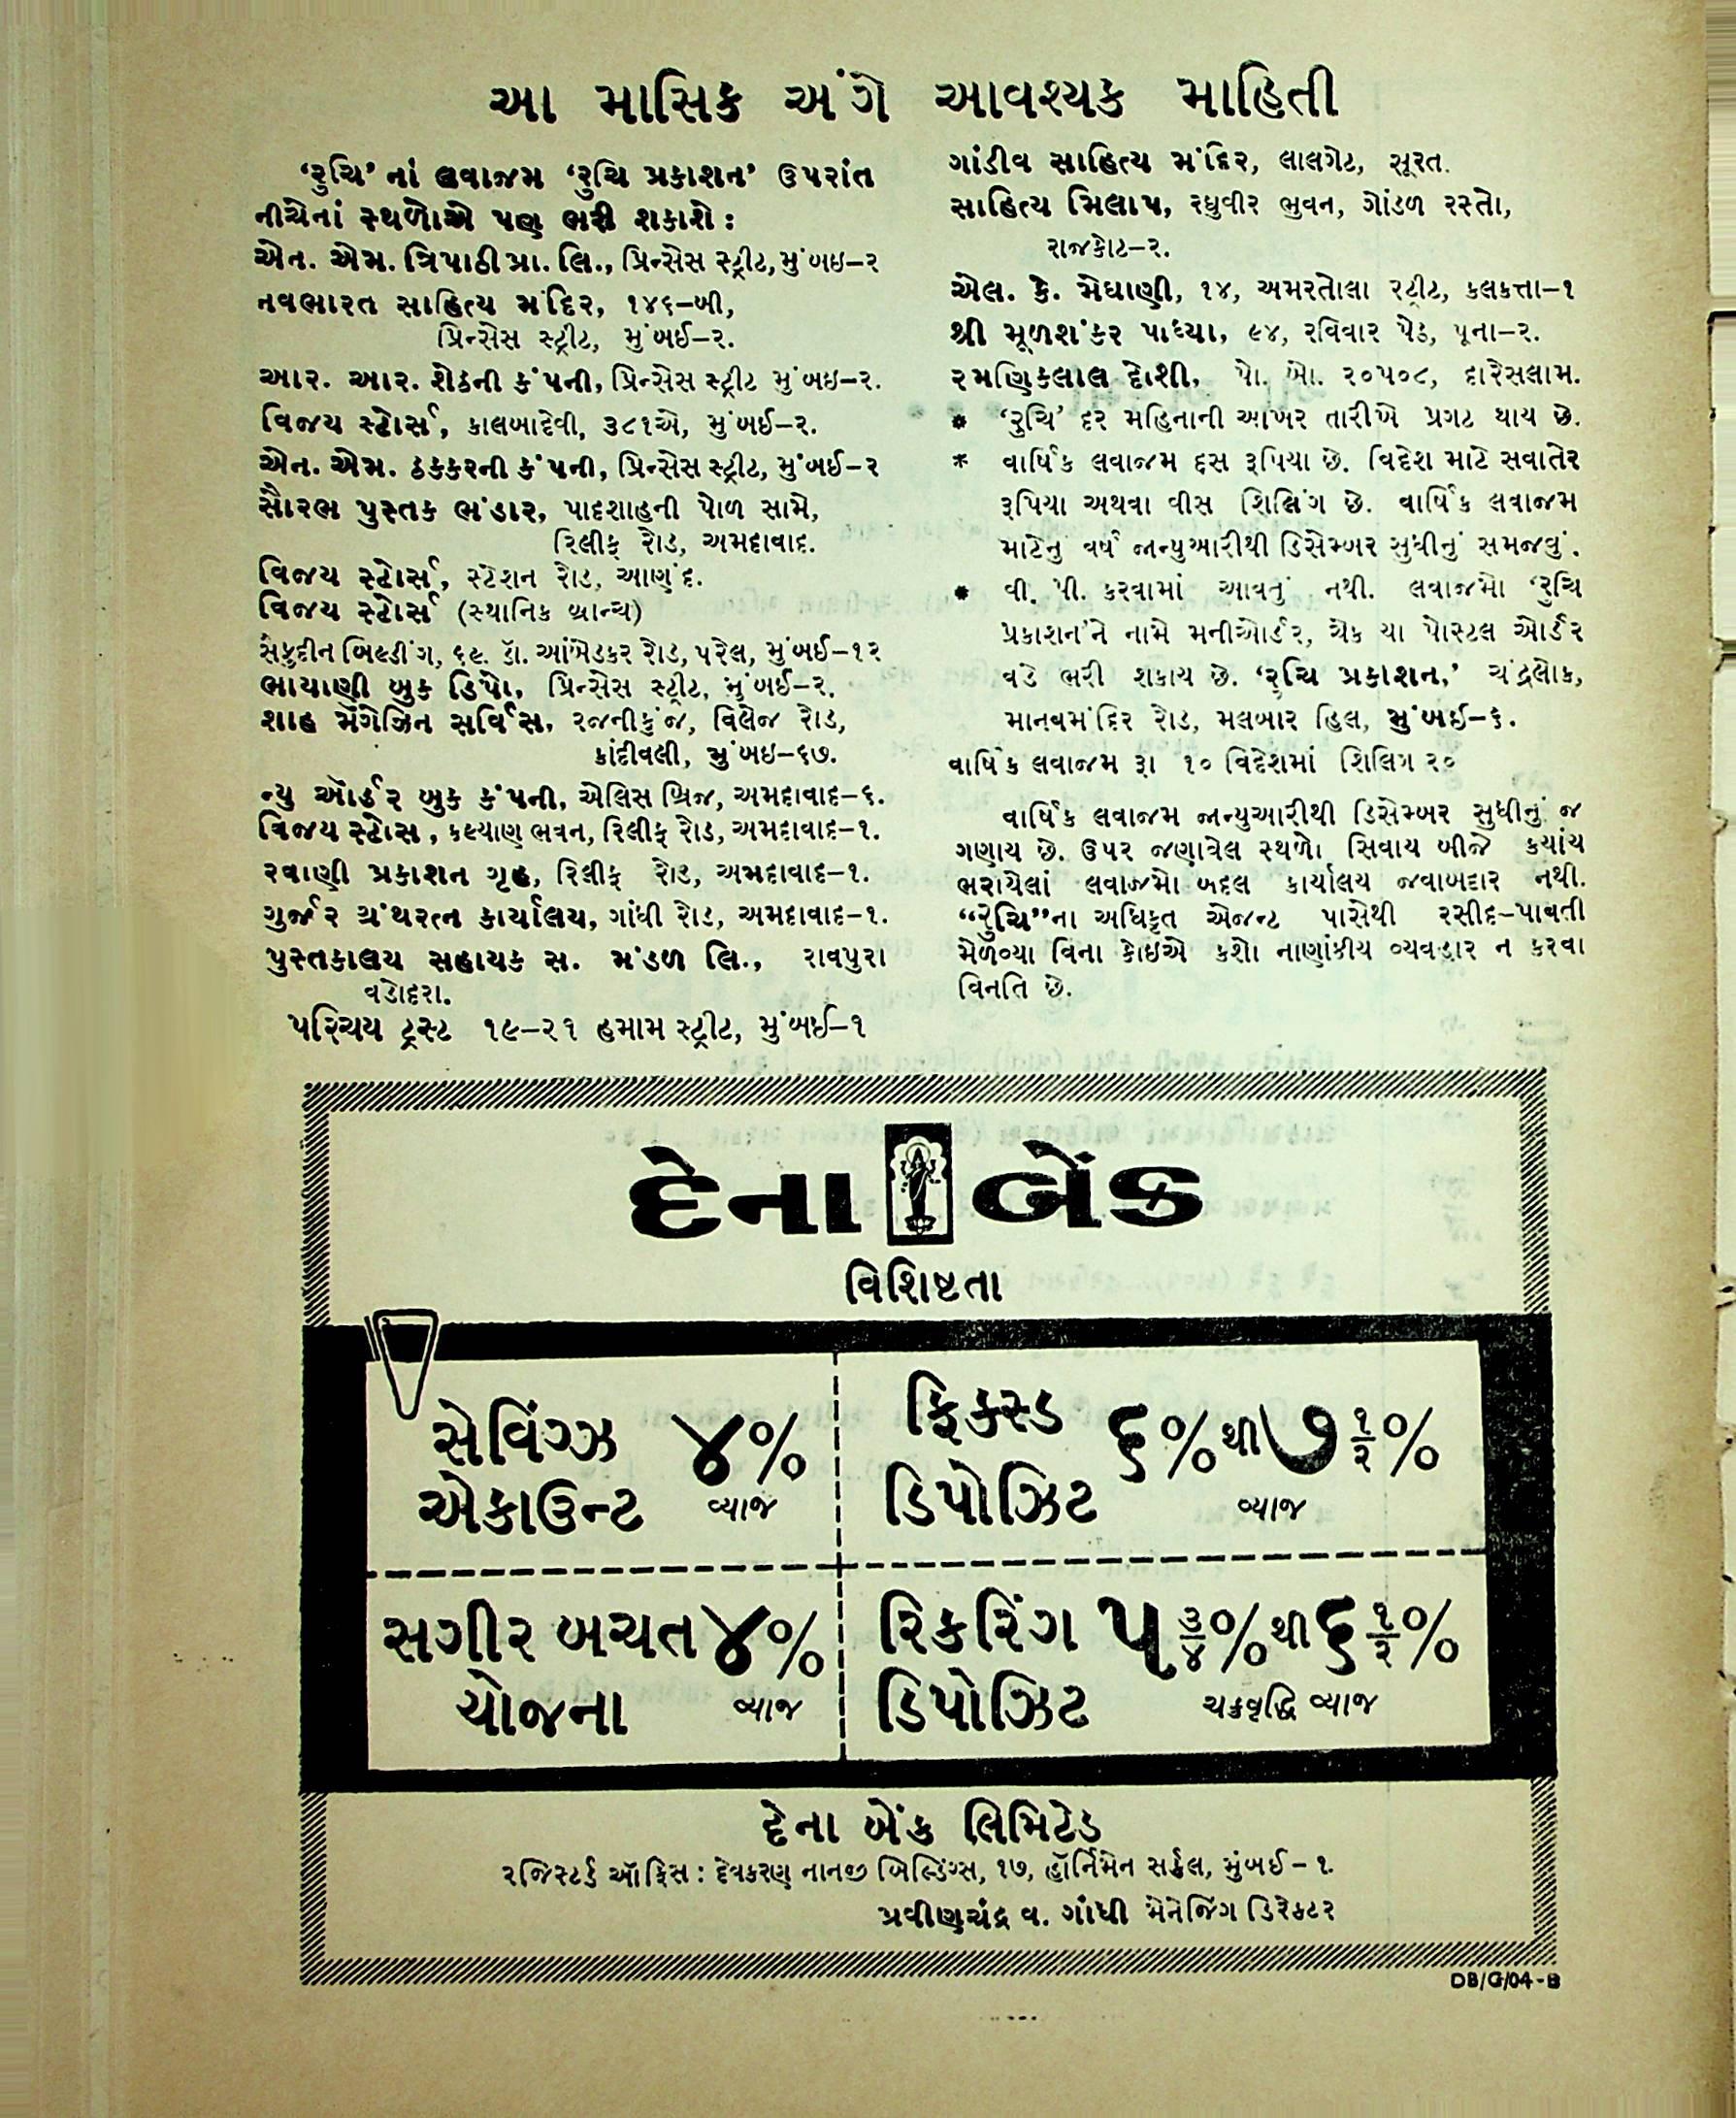 આ માસિક અંગે આવશ્યક માહિતી
‘રુચિ’ નાં લવાજમ ‘રુચિ પ્રકાશન’ ઉપરાંત
નીચેનાં સ્થળોએ પણ ભરી શકાશે :
એન. એમ. ત્રિપાઠી પ્રા. લિ., પ્રિન્સેસ સ્ટ્રીટ, મુંબઇ-૨
નવભારત સાહિત્ય મંદિર, ૧૪૬-બી,
પ્રિન્સેસ સ્ટ્રીટ, મુંબઈ-૨.
આર. આર. શેઠની કંપની, પ્રિન્સેસ સ્ટ્રીટ મુંબઇ-૨.
વિજય સ્ટોર્સ, કાલબાદેવી, ૩૮૧એ, મુંબઈ-૨.
એન. એમ. ઠક્કરની કંપની, પ્રિન્સેસ સ્ટ્રીટ, મુંબઈ-૨
સૌરભ પુસ્તક ભંડાર, પાદશાહની પોળ સામે,
રિલીફ રોડ, અમદાવાદ.
વિજય સ્ટોર્સ, સ્ટેશન રોડ, આણંદ.
વિજય સ્ટોર્સ (સ્થાનિક બ્રાન્ચ)
સૈફુદીન બિલ્ડીંગ, ૬૯. ડૉ. આંબેડકર રોડ, પરેલ, મુંબઈ-૧૨
ભાયાણી બુક ડિપો, પ્રિન્સેસ સ્ટ્રીટ, મુંબઈ-૨.
શાહ મેગેઝિન સર્વિસ, રજનીકુંજ, વિલેજ રોડ,
કાંદીવલી, મુંબઇ-૬૭.
ન્યુ ઑર્ડર બુક કંપની, એલિસ બ્રિજ, અમદાવાદ-૬.
વિજય સ્ટોર્સ, કલ્યાણ ભવન, રિલીફ રોડ, અમદાવાદ-૧.
રવાણી પ્રકાશન ગૃહ, રિલીફ રોડ, અમદાવાદ-૧.
ગુર્જર ગ્રંથરત્ન કાર્યાલય, ગાંધી રોડ, અમદાવાદ-૧.
પુસ્તકાલય સહાયક સ. મંડળ લિ., રાવપુરા
વડોદરા.
પરિચય ટ્રસ્ટ ૧૯-૨૧ હમામ સ્ટ્રીટ, મુંબઈ-૧
ગાંડીવ સાહિત્ય મંદિર, લાલગેટ, સૂરત.
સાહિત્ય મિલાપ, રઘુવીર ભુવન, ગોંડળ રસ્તો,
રાજકોટ-૨.
એલ. કે. મેઘાણી, ૧૪, અમરતોલા સ્ટ્રીટ, કલકત્તા-૧
શ્રી મૂળશંકર પાધ્યા, ૯૪, રવિવાર પેઠ, પૂના-૨.
રમણિકલાલ દોશી, પો. બો. ૨૦૫૦૮, દારેસલામ.
* ‘રુચિ’ દર મહિનાની આખર તારીખે પ્રગટ થાય છે.
* વાર્ષિક લવાજમ દસ રૂપિયા છે. વિદેશ માટે સવાતેર
રૂપિયા અથવા વીસ શિલિંગ છે. વાર્ષિક લવાજમ
માટેનુ વર્ષ જાન્યુઆરીથી ડિસેમ્બર સુધીનું સમજવું.
* વી. પી. કરવામાં આવતું નથી. લવાજમો ‘રુચિ
પ્રકાશન’ને નામે મનીઓર્ડર, ચેક યા પોસ્ટલ ઓર્ડર
વડે ભરી શકાય છે. ‘રુચિ પ્રકાશન,’ ચંદ્રલોક,
માનવમંદિર રોડ, મલબાર હિલ, મુંબઈ-૬.
વાર્ષિક લવાજમ રૂા ૧૦ વિદેશમાં શિલિગ ૨૦
વાર્ષિક લવાજમ જાન્યુઆરીથી ડિસેમ્બર સુધીનું જ
ગણાય છે. ઉપર જણાવેલ સ્થળો સિવાય બીજે કયાંય
ભરાયેલાં લવાજમો બદલ કાર્યાલય જવાબદાર નથી.
“રુચિ”ના અધિકૃત એજન્ટ પાસેથી રસીદ-પાવતી
મેળવ્યા વિના કોઇએ કશો નાણાંકીય વ્યવહાર ન કરવા
વિનતિ છે.
દેના બેંક
વિશિષ્ટતા
સેવિંગ્ઝ એકાઉન્ટ ૪% વ્યાજ
ફિક્સ્ડ ડિપોઝિટ ૬% થી ૭ ૧/૨ % વ્યાજ
સગીર બચત યોજના ૪% વ્યાજ
રિકરિંગ ડિપોઝિટ ૫ ૩/૪ % થી ૬ ૧/૨ % ચક્રવૃદ્ધિ વ્યાજ
દેના બેંક લિમિટેડ
રજિસ્ટર્ડ ઑફિસ : દેવકરણ નાનજી બિલ્ડિંગ્સ, ૧૭, હૉર્નિમેન સર્કલ, મુંબઈ - ૧.
પ્રવીણચંદ્ર વ. ગાંધી મેનેજિંગ ડિરેક્ટર
DB/G/04-B